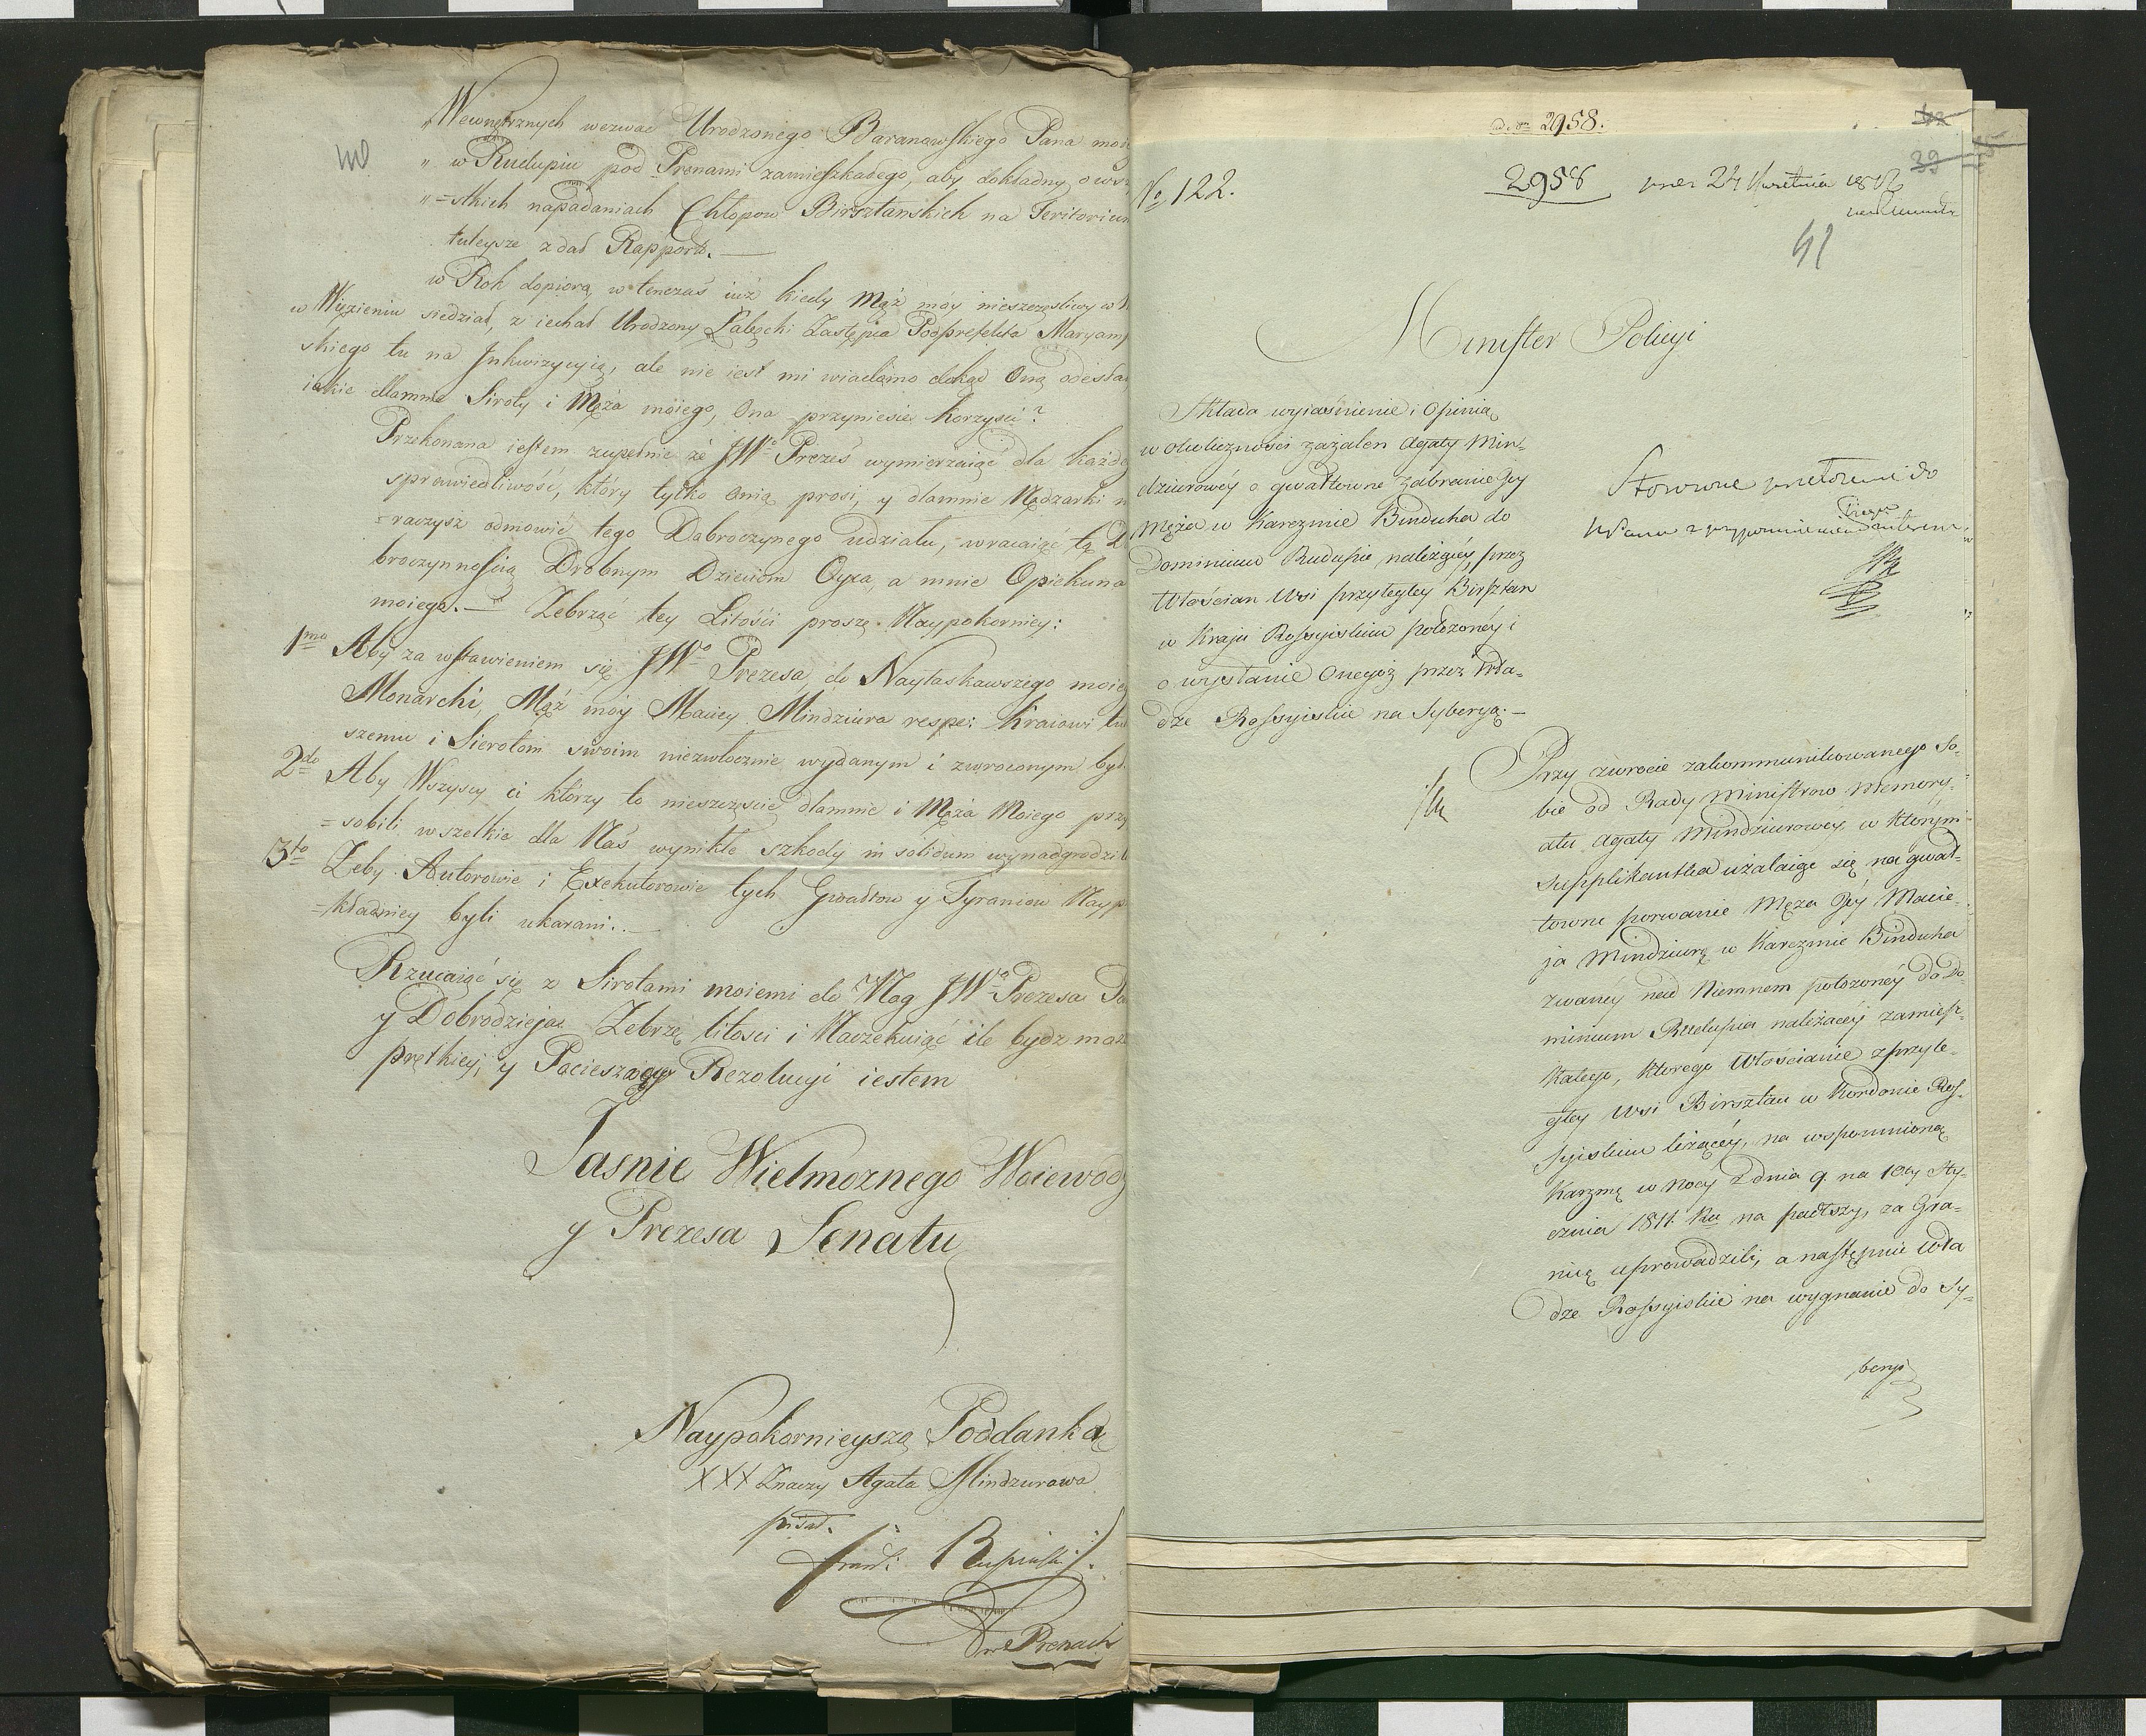 „Wewnętrznych wezwać Urodzonego Baranowskiego Pana
„ w Rudupiu pod Prenami zamieszkałego, aby dokładny o
„=stkich napadaniach Chłopow Birsztanskich na Teritorium
tuteysze zdał Rapport. —
w Rok dopiero, w tenczas iuż kiedy Mąż móy nieszczęsliwy w
w Więzieniu siedział, z iechał Urodzony Łabęcki Zastępca Podprefekta Maryamp
skiego tu na Inkwizycyią, ale nie iest mi wiadomo dokąd Oną odesłał
iakie dlamnie Siroty i Męża móiego, Ona przyniesie korzysci?
Przekonana iestem zupełnie że JWo Prezes wymierzaiąć dla każde
sprawiedliwość, który tylko Onią prosi, y dlamnie Nędzarki n
=raczysz odmowić tego Dobroczynego udziału, wracaiąć tą D
broczynnością Drobnym Dzieciom Oyca, a mnie Opiekuna
moiego. — Żebrząc tey Litości proszę Naypokorniey:
1mo Aby za wstawieniem się JWo Prezesa, do Naylaskawszego moie
Monarchi, Mąż móy Maciey Mindziura respe: Kraiowi tu
szemu i Sierotom swoim niezwłocznie wydanym i zwroconym był
2do Aby Wszyscy ci którzy to nieszczęscie dlamnie i Męża Moiego przy
=sobili wszelkie dla Nas wynikłe szkody in solidum wynadgrodzili
3to Żeby Autorowie i Exekutorowie tych Gwałtow y Tyraniow Nayp
=kładniey byli ukarani. —
Rzucaiąć się z Sirotami moiemi do Nog JWo Prezesa Pa
y Dobrodzieja Żebrzę litosci i Naczekuiąć ile bydz moż
prętkiey, y Pocieszaiący Rezolucyi iestem
Jasnie Wielmoznego Woiewody
y Prezesa Senatu
Naypokornieyszą Poddanką
XXX Znaczy Agata Mindzurowa
pisał.
w Prenach
2958.
39
No 122.
2958 24 Kwietnia 1812
41
Minister Policyi
Składa wyiaśnienie i Opinią
w okoliczności zażaleń Agaty Min=
dziurowéy o gwałtowne zabranie Jey
Męża w Karczmie Binducha do
Dominium Rudupie należącéy, przez
Włościan Wsi przyległey Birsztan
w Kraju Rossyiskim położonéy i
o wysłanie Onegoż przez Wła=
dze Rossyiskie na Syberyą. —
Stosowne przełożenie do
Przy zwrocie zakommunikowanego so=
bie od Rady Ministrow Memory=
ału Agaty Mindziurowéy, w którym
Supplikantka użalaiąc się na gwał=
towne porwanie Męża Jéy Macie=
ja Mindziurę w Karczmie Binducha
zwanéy nad Niemnem położonéy do Do=
minium Rudupia należącéy zamiesz=
kałego, ktorego Włościanie z przyle=
głey Wsi Birsztan w Kordonie Ros=
syiskim leżącéy, na wspomnioną
Karczmę w Nocy z dnia 9 na 10ty Sty=
cznia 1811 Ru na padłszy, za Gra=
nicę uprowadzili, a następnie Wła
dze Rossyiskie na wygnanie do Sy=
beryi